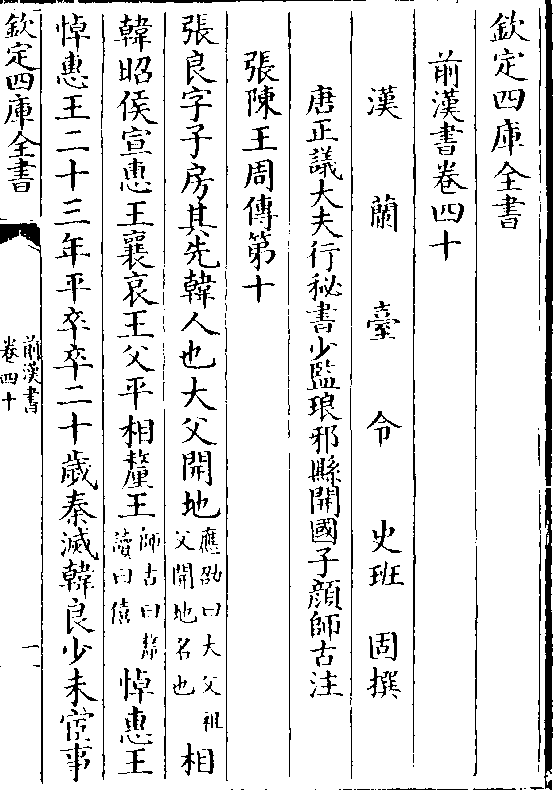 欽定四庫全書
前漢書卷四十
漢蘭臺令史班固撰
唐正議大夫行秘書少監琅邪縣開國子顔師古注
張陳王周傳第十
張良字子房其先韓人也大父開地應劭曰大父祖父開地名也相
韓昭侯宣惠王襄哀王父平相釐王師古曰釐讀曰僖悼惠王
悼惠王二十三年平卒卒二十歲秦滅韓良少未宦事
欽定四庫全書
前漢書
卷四十
一